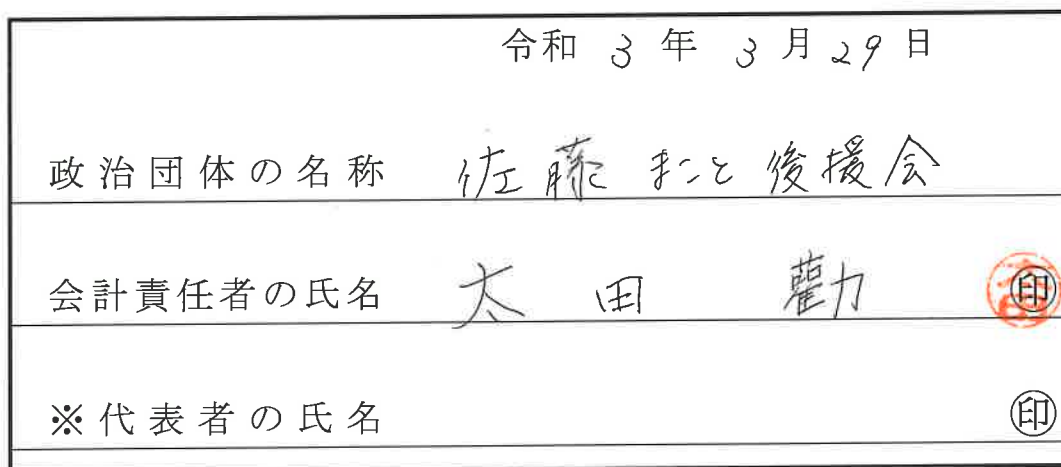 令和 3 年 3 月 29 日
政治団体の名称 佐藤まこと後援会
会計責任者の氏名 太田 勸 ㊞
※代表者の氏名 ㊞